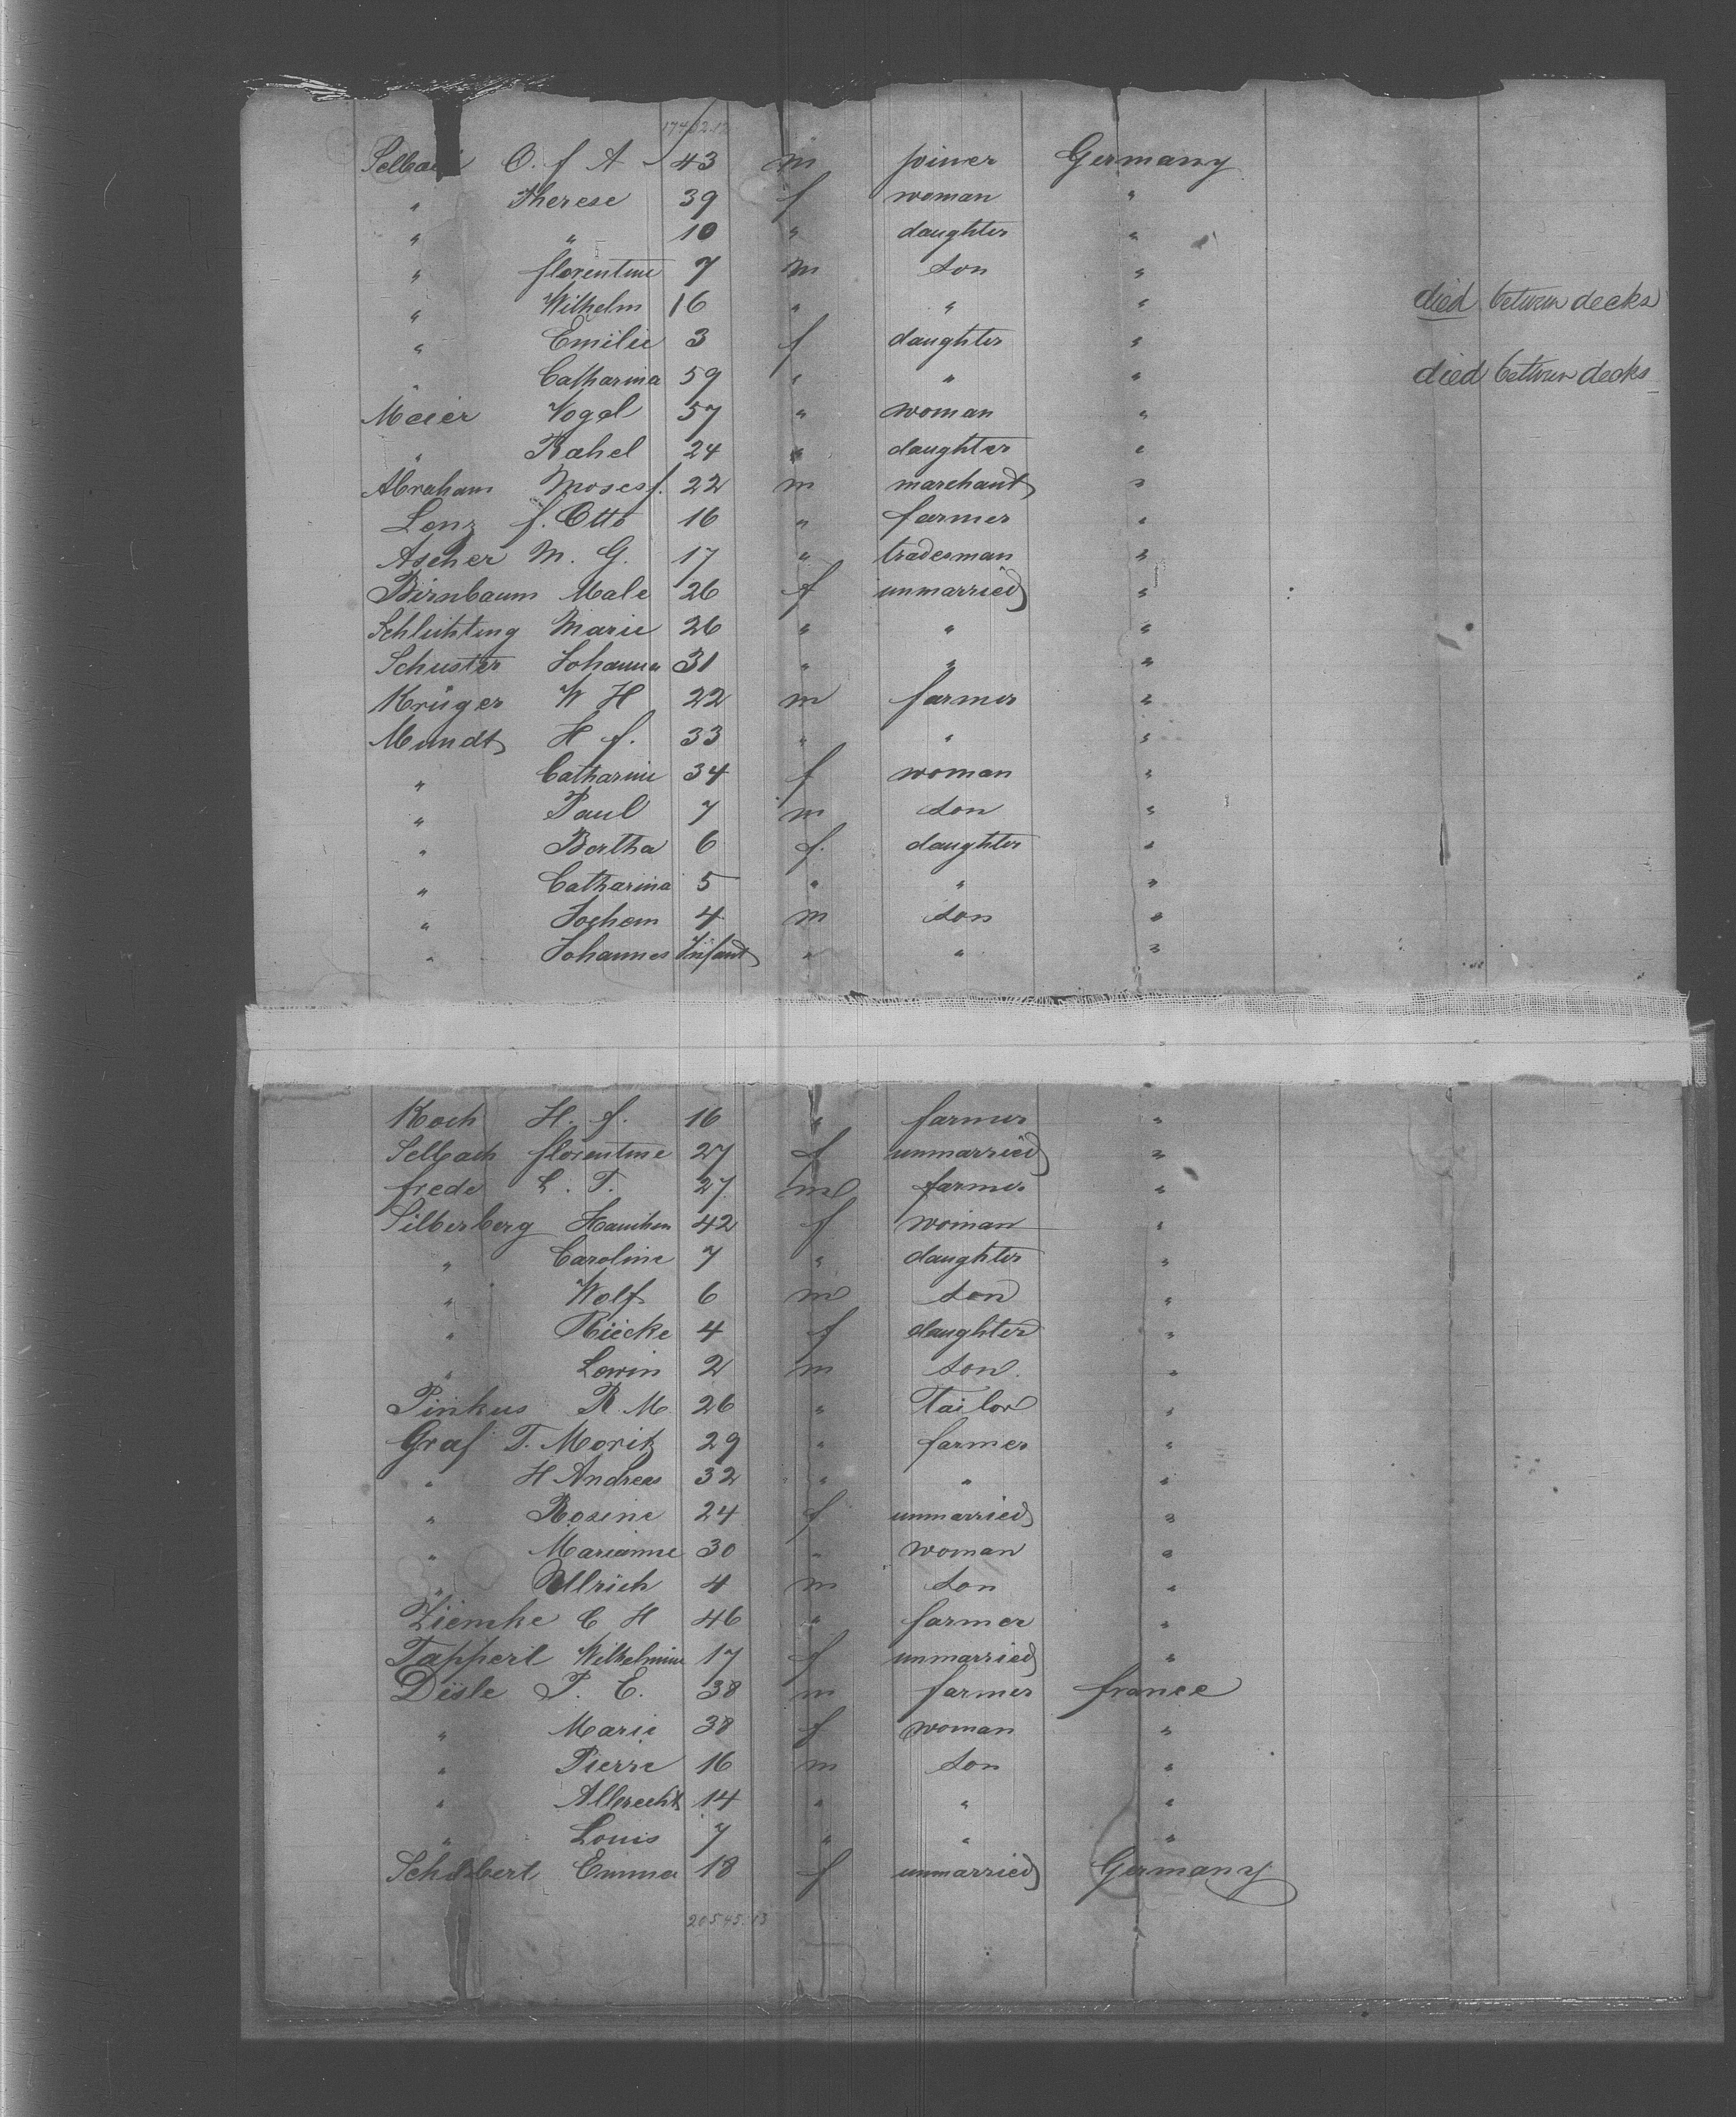 Selbach O. f A 43 m joiner Germany
" Therese 39 f woman "
" " 10 " daughter "
" florentine 7 m son "
" Wilhelm 16 " " " died between decks
" Emilie 3 f daughter "
" Catharina 59 " " " died between decks
Meier Vogel 57 " woman "
" Rahel 24 " daughter "
Abraham Moses f. 22 m marchant "
Lenz f. Otto 16 " farmer "
Ascher M. G. 17 " tradesman "
Birnbaum Male 26 f unmarried "
Schlichting Marie 26 " " "
Schuster Johanna 31 " " "
Krüger W H 22 m farmer "
Mundt H f. 33 " " "
" Catharine 34 f woman "
" Paul 7 m son "
" Bertha 6 f. daughter "
" Catharina 5 " " "
" Jochem 4 m son "
" Johannes Infant " " "
Koch H. f. 16 " farmer "
Selbach florentine 27 f unmarried "
frede L. T. 27 m farmer "
Silberberg Hanchen 42 f woman "
" Caroline 7 " daughter "
" Wolf 6 m son "
" Riecke 4 f daughter "
" Lewin 2 m son. "
Pinkus R. M. 26 " Tailor "
Graf T. Moritz 29 " farmer "
" H Andreas 32 " " "
" Rosine 24 f unmarried "
" Marianne 30 " woman "
" Ullrich 4 m son "
Ziemke C H 46 " farmer "
Tappert Wilhelmine 17 f unmarried "
Disle P. E. 38 m farmer france
" Marie 38 f woman "
" Pierre 16 m son "
" Albrecht 14 " " "
" Louis 7 " " "
Schubert Emma 18 f unmarried Germany